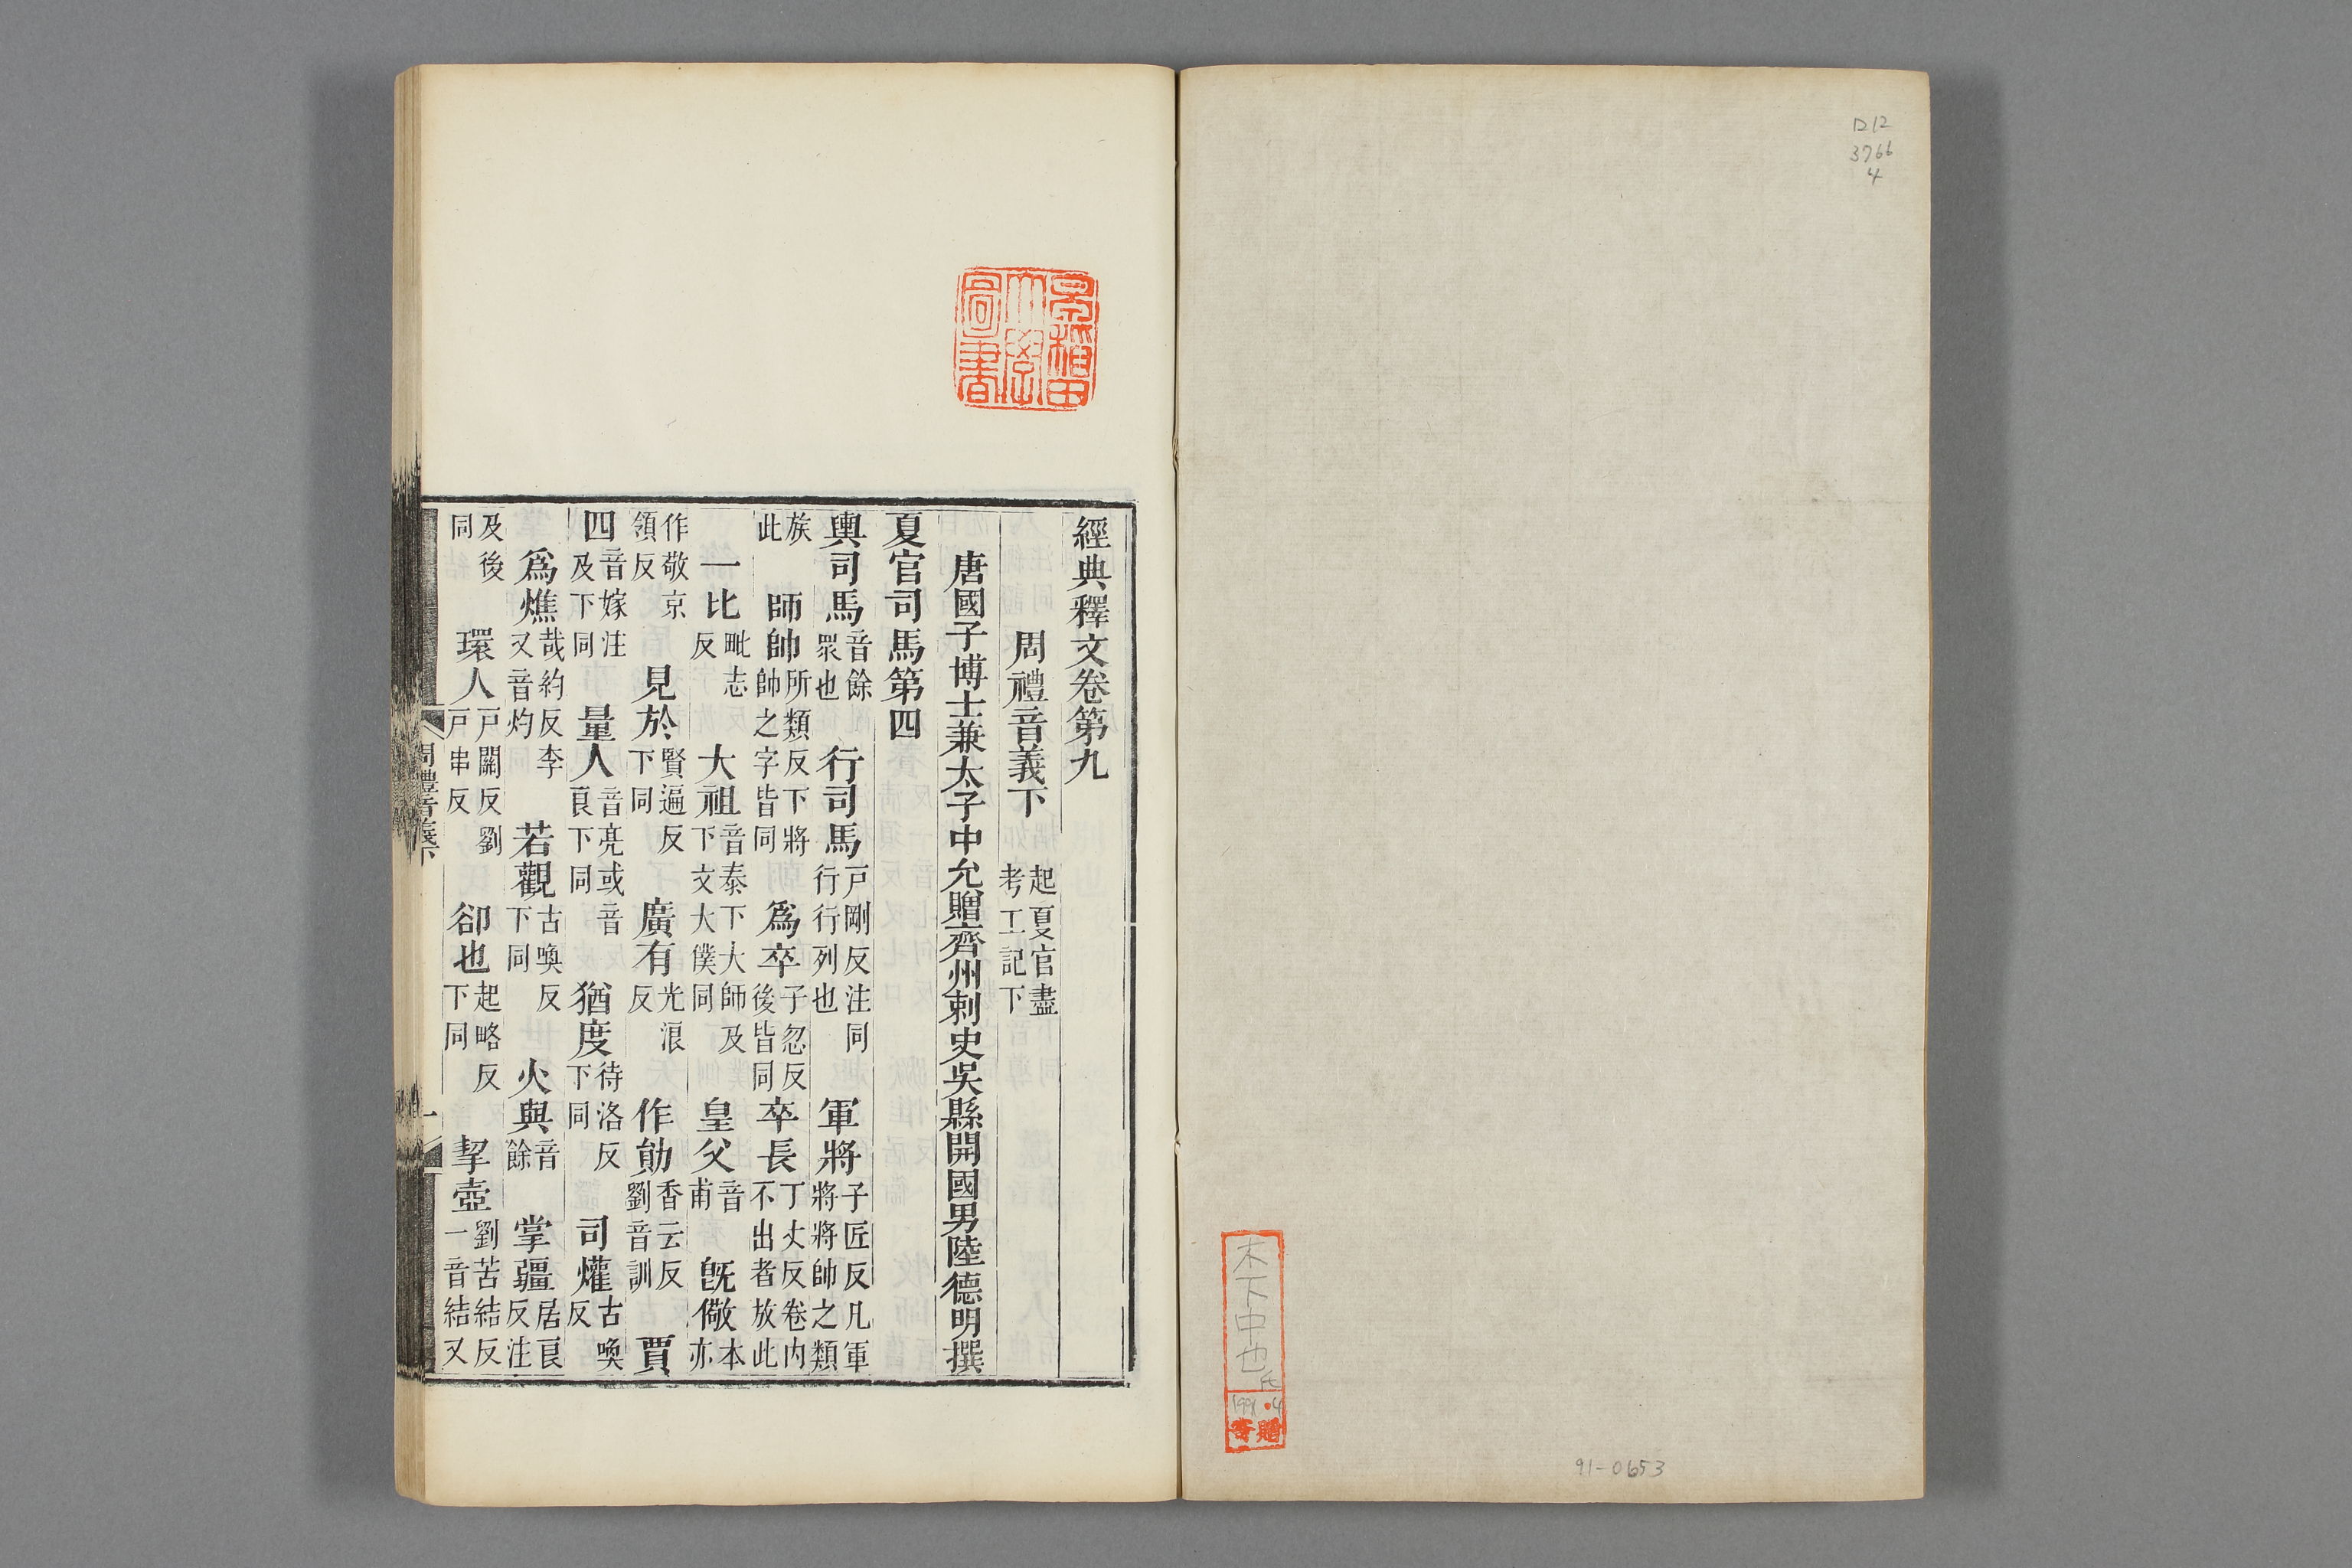 D12
3766
4
木下中也氏
1991.4
寄贈
91-0653
早稲田大學圖書
經典釋文卷第九
周禮音義下 起夏官盡考工記下
唐國子博士兼太子中允贈齊州刺史吳縣開國男陸德明撰
夏官司馬第四
輿司馬 音餘衆也 行司馬 戸剛反注同行行列也 軍將 子匠反凡軍將將將帥之類
族此 師帥 所類反下將帥之字皆同 爲卒 子忽反後皆同 卒長 丁丈反卷内不出者放此
一比 毗志反 大祖 音泰下大師及下文大僕同 皇父 音甫 旣儆 本亦
作敬京領反 見於 賢遍反下同 廣有 光浪反 作勛 香云反劉音訓 賈
四 音嫁注及下同 量人 音亮或音良下同 猶度 待洛反下同 司爟 古喚反
爲燋 哉約反李又音灼 若觀 古喚反下同 火與 音餘 掌疆 居良反注
及後同 環人 戸關反劉戸串反 卻也 起略反下同 挈壺 劉苦結反一音結又
周禮音義下 一